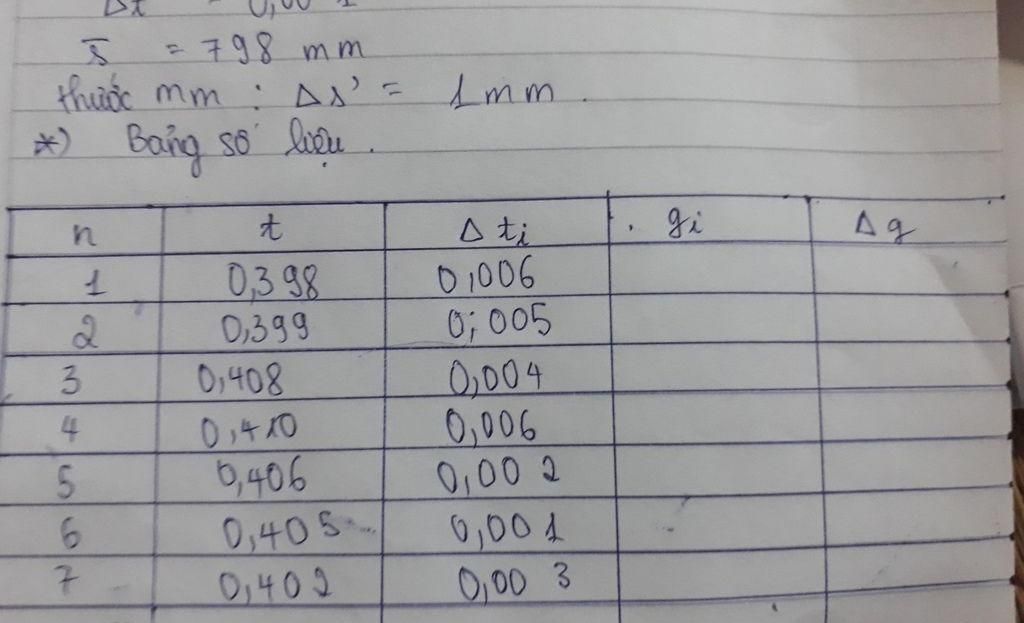 s̄ = 798 mm
thước mm : Δs' = 1mm.
*) Bảng số liệu.
n t Δti gi Δg
1 0,398 0,006
2 0,399 0;005
3 0,408 0,004
4 0,410 0,006
5 0,406 0,002
6 0,405 0,001
7 0,402 0,003